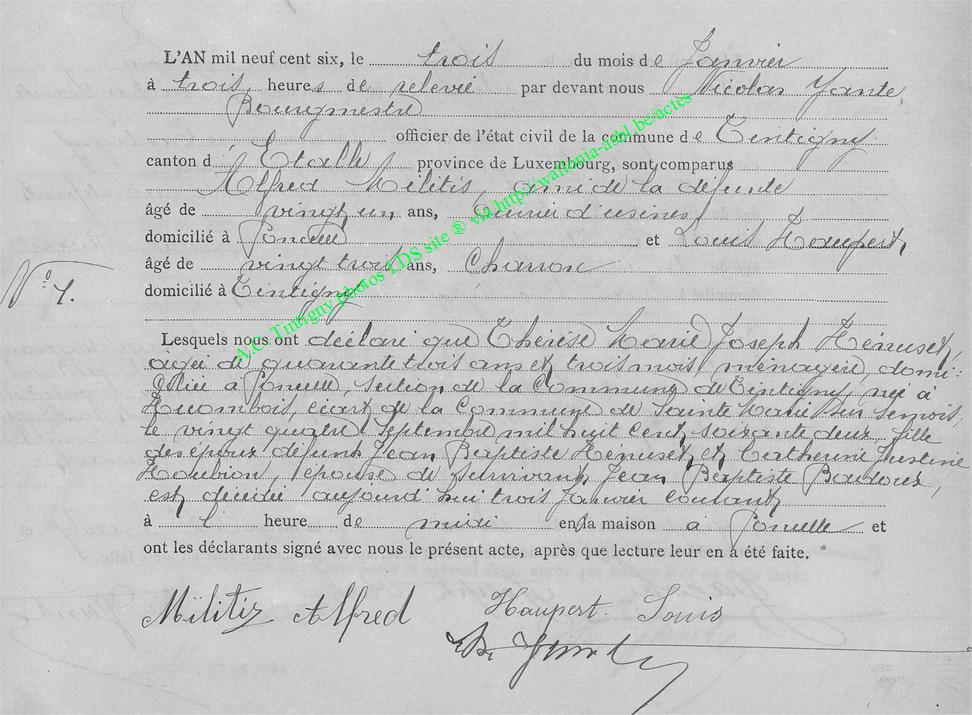 L'AN mil neuf cent six, le trois du mois de Janvier
à trois heures de relevée par devant nous Nicolas Yante,
Bourgmestre
officier de l'état civil de la commune de Tintigny
canton d'Etalle province de Luxembourg, sont comparus
Alfred Militis, ami de la défunte
âgé de vingt un ans, ouvrier d'usines
domicilié à Poncelle et Louis Haupert,
âgé de vingt trois ans, Charron
domicilié à Tintigny
N° 1.
Lesquels nous ont déclaré que Thérèse Marie Joseph Hénuset,
âgée de quarante trois ans et trois mois, ménagère, domi-
ciliée à Poncelle, section de la Commune de Tintigny, née à
écart de la Commune de Sainte Marie sur Semois,
le vingt quatre Septembre mil huit cent soixante deux, fille
des époux défunts Jean Baptiste Hénuset et Catherine Justine
épouse de survivant Jean Baptiste
est décédée aujourd'hui trois Janvier courant,
à l heure de midi en la maison à Poncelle et
ont les déclarants signé avec nous le présent acte, après que lecture leur en a été faite.
Militiz Alfred Haupert Louis
Yante
A.C. Tintigny photos LDS site ® via http://wallonia-asbl.be/actes